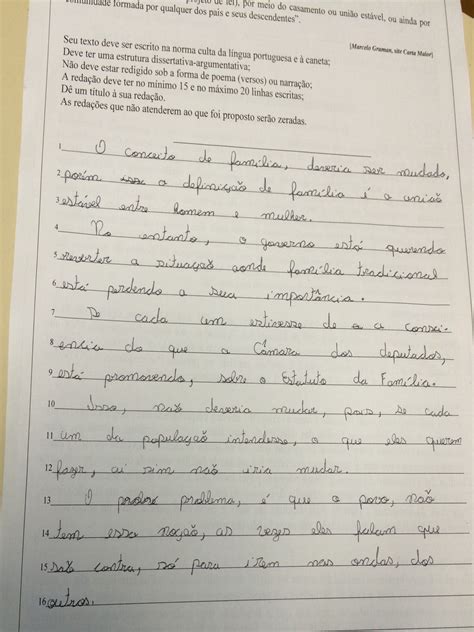 projeto de lei), por meio do casamento ou união estável, ou ainda por
comunidade formada por qualquer dos pais e seus descendentes".
[Marcelo Gruman, site Carta Maior]
Seu texto deve ser escrito na norma culta da língua portuguesa e à caneta;
Deve ter uma estrutura dissertativa-argumentativa;
Não deve estar redigido sob a forma de poema (versos) ou narração;
A redação deve ter no mínimo 15 e no máximo 20 linhas escritas;
Dê um título à sua redação.
As redações que não atenderem ao que foi proposto serão zeradas.
1 O conceito de família, deveria ser mudado,
2 porém a definição de família é a união
3 estável entre homem e mulher.
4 No entanto, o governo está querendo
5 reverter a situação aonde família tradicional
6 está perdendo a sua importância.
7 Se cada um estivesse de a a consci-
8 encia do que a Câmara dos deputados,
9 está promovendo, sobre o Estatuto da Família.
10 Isso, não deveria mudar, pois, se cada
11 um da população intendesse, o que eles querem
12 fazer, ai sim não iria mudar.
13 O problema, é que o povo, não
14 tem essa noção, as vezes eles falam que
15 são contra, só para irem nas ondas, dos
16 outros.